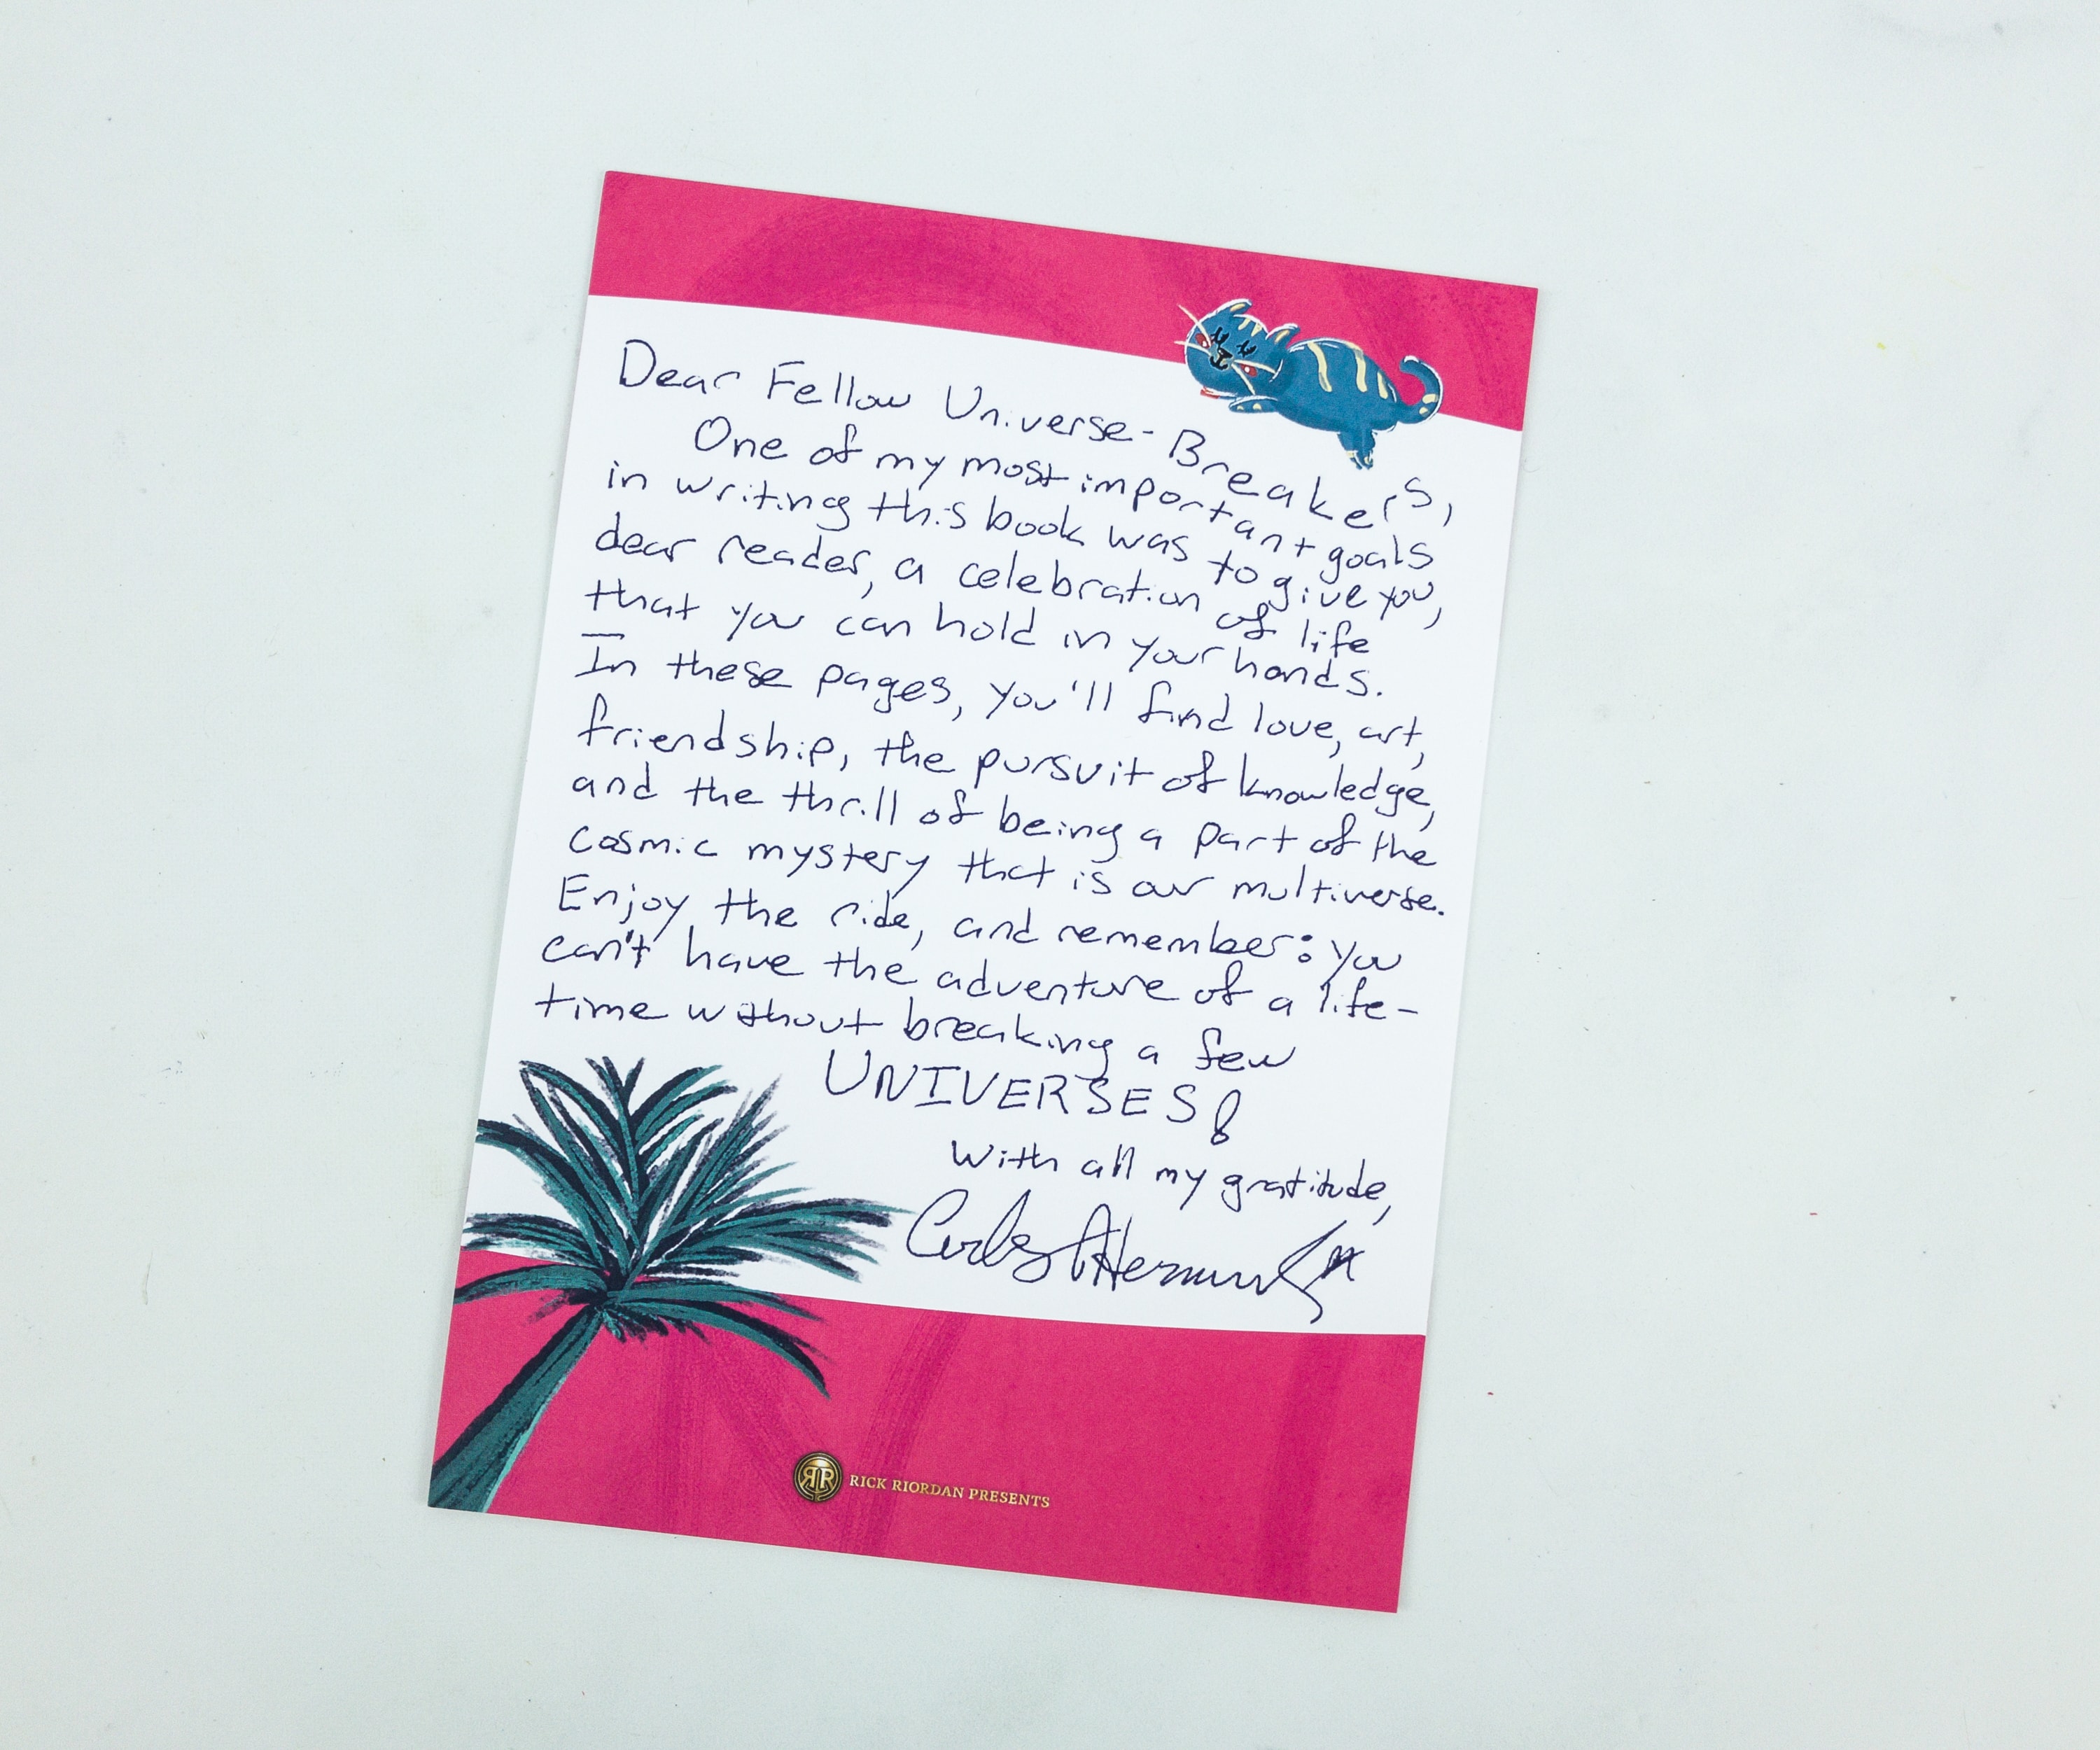 Dear Fellow Universe-Breakers,
One of my most important goals
in writing this book was to give you,
dear reader, a celebration of life
that you can hold in your hands.
In these pages, you'll find love, art,
friendship, the pursuit of knowledge,
and the thrill of being a part of the
cosmic mystery that is our multiverse.
Enjoy the ride, and remember: you
can't have the adventure of a life-
time without breaking a few
UNIVERSES!
With all my gratitude,
Carlos A Hernandez
RR RICK RIORDAN PRESENTS